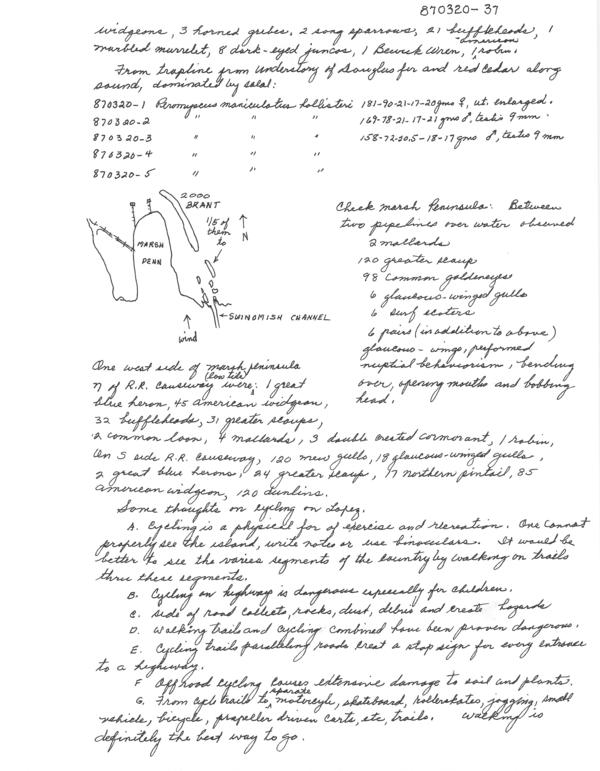 870320-37
widgeons, 3 horned grebes, 2 song sparrows, 21 buffleheads, 1
marbled murrelet, 8 dark-eyed juncos, 1 Bewick Wren, 1 american robin.
From trapline from understory of Douglas fir and red cedar along
sound, dominated by salal:
870320-1 Peromyscus maniculatus hollisteri 181-90-21-17-20gms ♀, ut. enlarged.
870320-2 " " " 169-78-21-17-21 gms ♂, testis 9mm.
870320-3 " " " 158-72-20.5-18-17 gms ♂, testis 9 mm
870320-4 " " "
870320-5 " " "
2000
BRANT
1/5 of
them
to
N
MARSH
PENN
SWINOMISH CHANNEL
wind
Check marsh Peninsula: Between
two pipelines over water observed
2 mallards
120 greater scaup
98 common goldeneyes
6 glaucous-winged gulls
6 surf scoters
6 pairs (in addition to above)
glaucous-wings, performed
nuptial behaviorism, bending
over, opening mouths and bobbing
head.
One west side of marsh peninsula
n of R.R. causeway (low tide) were: 1 great
blue heron, 45 american widgeon,
32 buffleheads, 31 greater scaups,
2 common loon, 4 mallards, 3 double crested cormorant, 1 robin,
On S side R.R. causeway, 120 mew gulls, 18 glaucous-winged gulls,
2 great blue herons, 24 greater scaup, 17 northern pintail, 85
american widgeon, 120 dunlins.
Some thoughts on cycling on Lopez.
A. Cycling is a physical for of exercise and recreation. One cannot
properly see the island, write notes or use binoculars. It would be
better to see the varies segments of the country by walking on trails
thru these segments.
B. Cycling on highway is dangerous especially for children.
C. side of road collects, rocks, dust, debris and create hazards
D. Walking trails and cycling combined have been proven dangerous.
E. Cycling trails paralleling roads creat a stop sign for every entrance
to a highway.
F Off road cycling causes extensive damage to soil and plants.
G. From cycle trails to separate motorcycle, skateboard, rollerskates, jogging, small
vehicle, bicycle, propeller driven carts, etc, trails. walking is
definitely the best way to go.